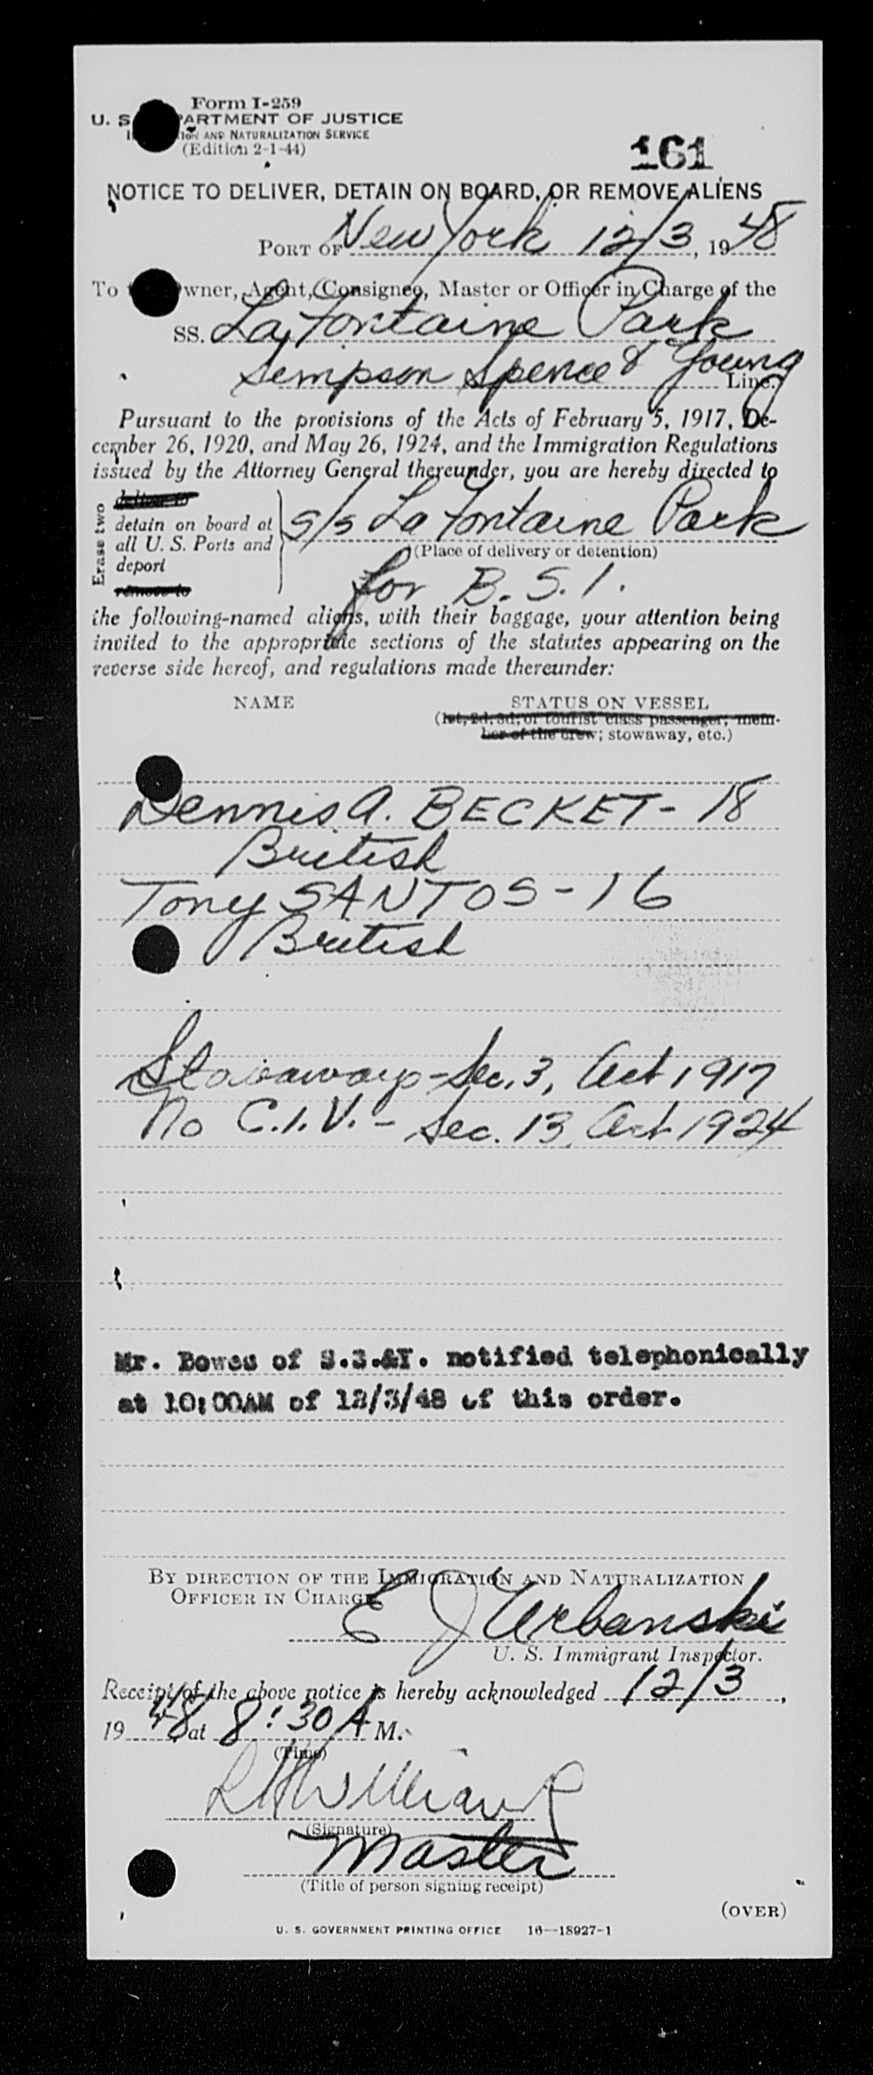 Form I-259
U. S. DEPARTMENT OF JUSTICE
AND NATURALIZATION SERVICE
(Edition 2-1-44)
161
NOTICE TO DELIVER, DETAIN ON BOARD, OR REMOVE ALIENS
PORT OF New York 12/3, 1948
To the Owner, Agent, Consignee, Master or Officer in Charge of the
SS. La Fontaine Park
Simpson Spence & Young Line
Pursuant to the provisions of the Acts of February 5, 1917, De-
cember 26, 1920, and May 26, 1924, and the Immigration Regulations
issued by the Attorney General thereunder, you are hereby directed to
Erase two
deliver to
detain on board at
all U. S. Ports and
deport
remove to
s/s La Fontaine Park
(Place of delivery or detention)
for B. S. I.
the following-named aliens, with their baggage, your attention being
invited to the appropriate sections of the statutes appearing on the
reverse side hereof, and regulations made thereunder:
NAME STATUS ON VESSEL
(1st, 2d, 3d, or tourist class passenger; mem-
ber of the crew; stowaway, etc.)
Dennis A. BECKET - 18
British
Tony SANTOS - 16
British
Stowaways - Sec. 3, Act 1917
No C.I.V. - Sec. 13, Act 1924
Mr. Bowes of S.S.&Y. notified telephonically
at 10:00AM of 12/3/48 of this order.
BY DIRECTION OF THE IMMIGRATION AND NATURALIZATION
OFFICER IN CHARGE
E J Urbanski
U. S. Immigrant Inspector.
Receipt of the above notice is hereby acknowledged 12/3,
1948, at 8:30 A M.
(Time)
Williams
(Signature)
Master
(Title of person signing receipt)
(OVER)
U. S. GOVERNMENT PRINTING OFFICE 16—18927-1